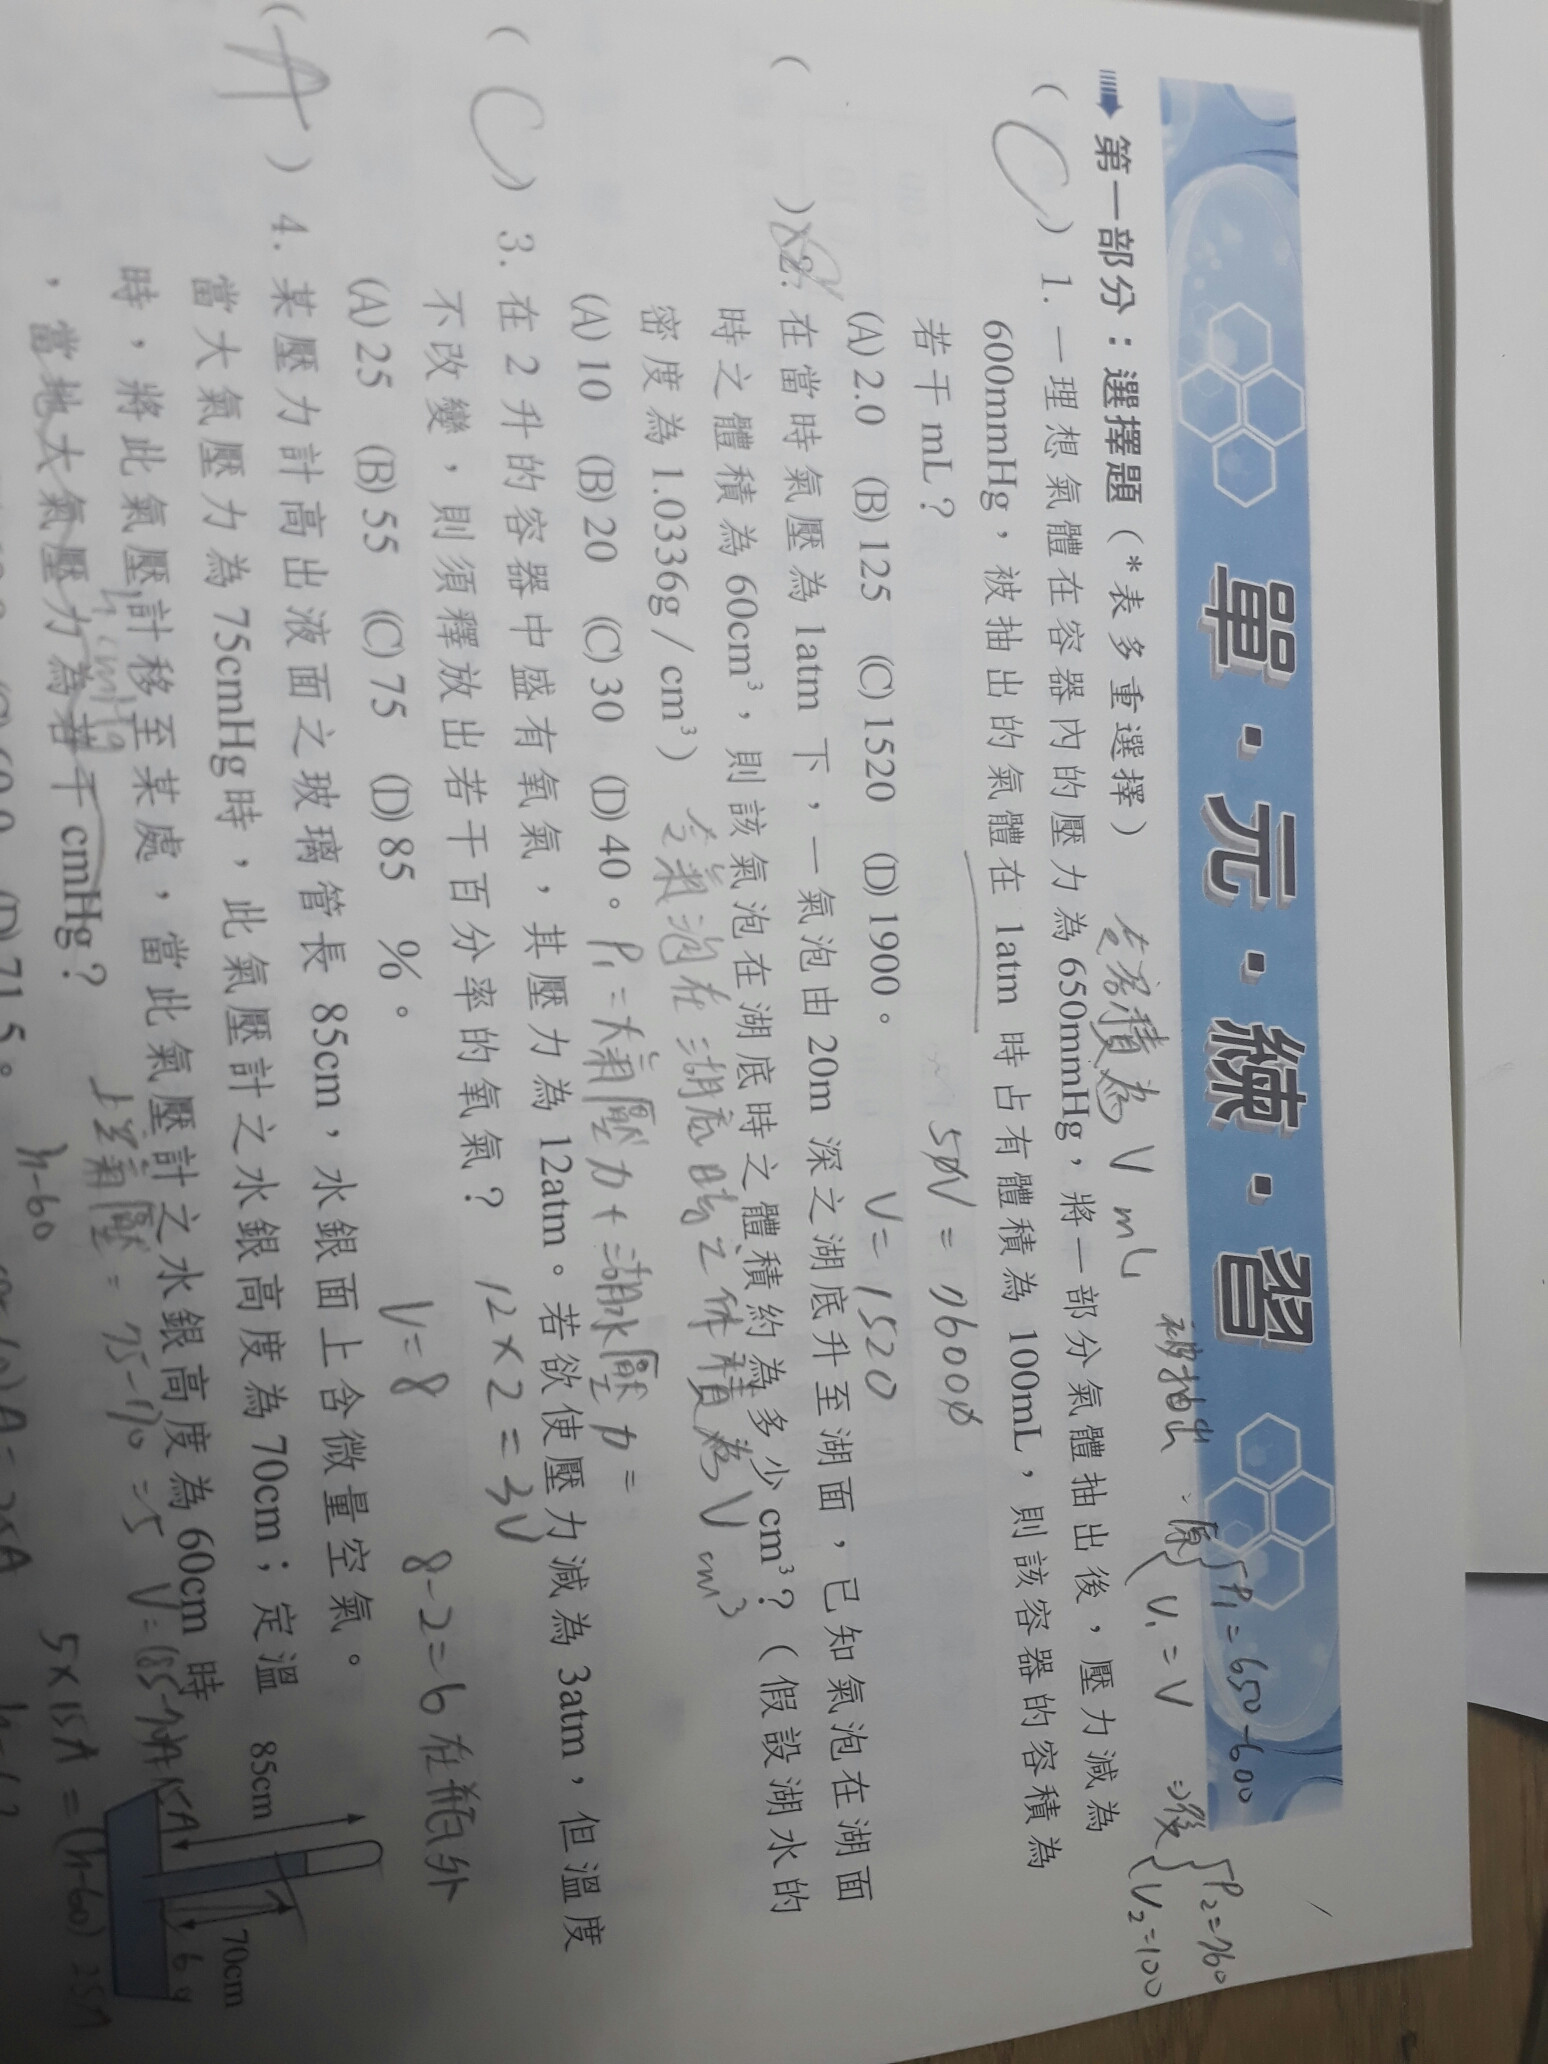 單·元·練·習
第一部分:選擇題(*表多重選擇)
去容積為 V mL
被抽出、原{P₁=650-600
V₁=V
⇒後{P₂=760
V₂=100
( C ) 1. 一理想氣體在容器內的壓力為 650mmHg,將一部分氣體抽出後,壓力減為
600mmHg,被抽出的氣體在 1atm 時占有體積為 100mL,則該容器的容積為
若干 mL?
50V = 76000
(A) 2.0 (B) 125 (C) 1520 (D) 1900。
V = 1520
( ) 2. 在當時氣壓為 1atm 下,一氣泡由 20m 深之湖底升至湖面,已知氣泡在湖面
時之體積為 60cm³,則該氣泡在湖底時之體積約為多少 cm³?(假設湖水的
密度為 1.0336g/cm³)
令氣泡在湖底時之体積為 V cm³
(A) 10 (B) 20 (C) 30 (D) 40。
P₁=大氣壓力+湖水壓力=
( C ) 3. 在 2 升的容器中盛有氧氣,其壓力為 12atm。若欲使壓力減為 3atm,但溫度
不改變,則須釋放出若干百分率的氧氣?
12×2=3V
(A) 25 (B) 55 (C) 75 (D) 85 %。
V=8
8-2=6在瓶外
( A ) 4. 某壓力計高出液面之玻璃管長 85cm,水銀面上含微量空氣。
當大氣壓力為 75cmHg 時,此氣壓計之水銀高度為 70cm;定溫
時,將此氣壓計移至某處,當此氣壓計之水銀高度為 60cm 時
,當地大氣壓力為若干 cmHg?
h cmHg
上空氣壓=75-70=5
h-60
5×15A=(h-60)25A
85cm
70cm
(D) 71.5。